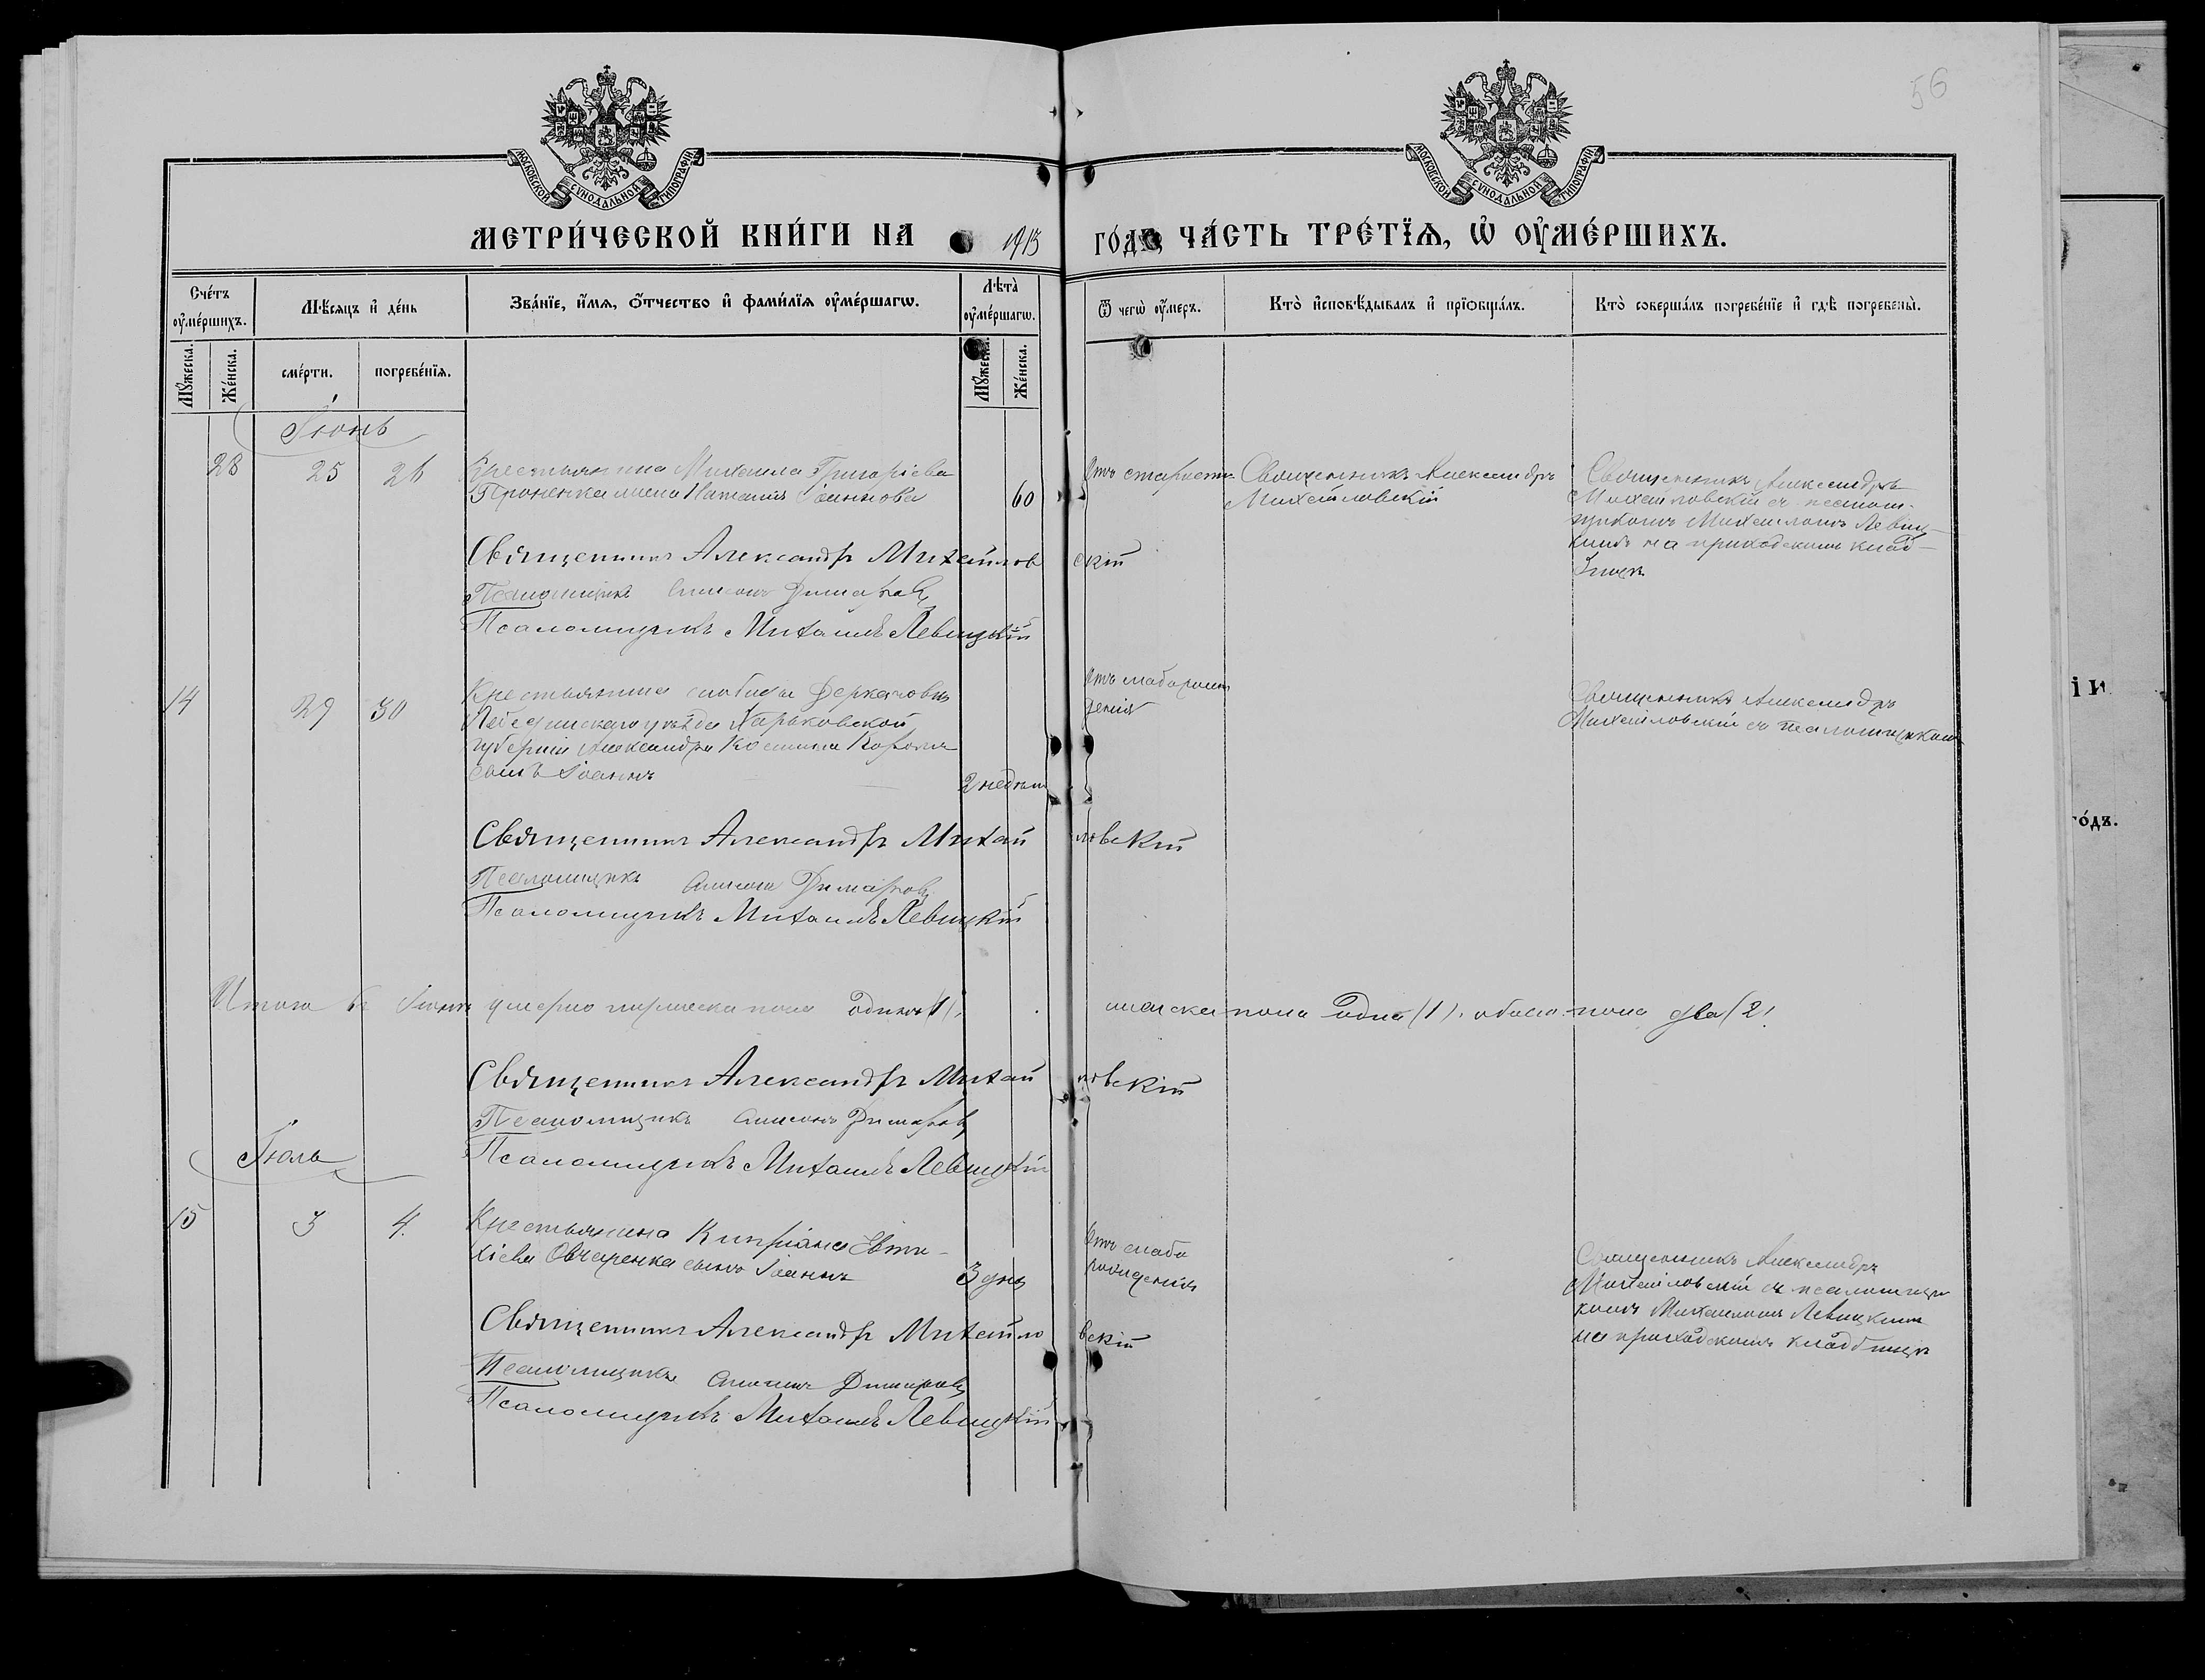 56
МОСКОВСКОЙ СѴНОДАЛЬНОЙ ТИПОГРАФІИ
МОСКОВСКОЙ СѴНОДАЛЬНОЙ ТИПОГРАФІИ
МЕТРИ́ЧЕСКОЙ КНИ́ГИ НА 1913 ГО́ДЪ, ЧА́СТЬ ТРЕ́ТЇѦ, Ѡ҆ ОУ҆МЕ́РШИХЪ.
Сче́тъ оу҆ме́ршихъ.
Мѣ́сяцъ и҆ де́нь
Зва́нїе, и҆́мѧ, ѻ҆́тчество и҆ фами́лїѧ оу҆ме́ршагѡ.
Лѣта̀ оу҆ме́ршагѡ.
Ѿ чегѡ̀ оу҆́меръ.
Кто̀ и҆сповѣ́дывалъ и҆ прїѻбща́лъ.
Кто̀ соверша́лъ погребе́нїе и҆ гдѣ̀ погребены̀.
Мꙋ́жеска.
Же́нска.
сме́рти.
погребе́нїѧ.
Мꙋ́жеска.
Же́нска.
Іюнь
28 25 26
Крестьянина Михаила Григоріева
Проненка жена Наталія Іоаннова 60
Отъ старости
Священникъ Александръ
Михайловскій
Священникъ Александръ
Михайловскій съ псаломщикомъ Михаиломъ Левиц-
кимъ на приходскомъ клад-
бищѣ
Священникъ Александръ Михайловскій
Псаломщикъ Симеонъ
Псаломщикъ Михаилъ Левицкій
14 29 30
Крестьянина слободы Деркачовки
Лебединскаго уѣзда Харьковской
губерніи Александра Космина Короля
сынъ Іоаннъ 2 недѣли
Отъ слаборож
денія
Священникъ Александръ
Михайловскій съ псаломщикомъ
Священникъ Александръ Михайловскій
Псаломщикъ Симеонъ
Псаломщикъ Михаилъ Левицкій
Итого въ Іюнѣ умерло мужеска пола одинъ (1), женска пола одна (1). обоего пола два (2).
Священникъ Александръ Михайловскій
Псаломщикъ Симеонъ
Псаломщикъ Михаилъ Левицкій
Іюль
15 3 4.
Крестьянина Кипріана Евти-
хіева Овчаренка сынъ Іоаннъ 3 дня
Отъ слабо
рожденія
Священникъ Александръ
Михайловскій съ псаломщи
комъ Михаиломъ Левицкимъ
на приходскомъ кладбищѣ
Священникъ Александръ Михайловскій
Псаломщикъ Симеонъ
Псаломщикъ Михаилъ Левицкій
го́дъ.